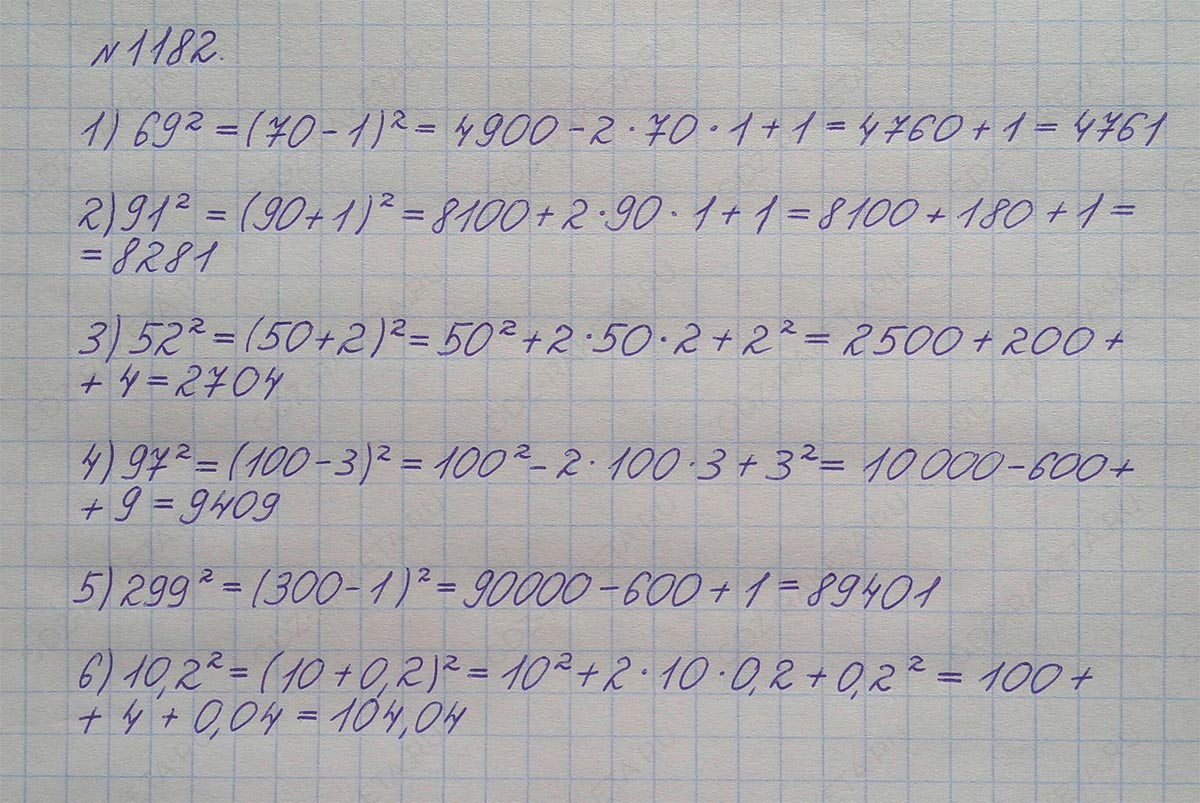 №1182.
1) 69² = (70 - 1)² = 4900 - 2 · 70 · 1 + 1 = 4760 + 1 = 4761
2) 91² = (90 + 1)² = 8100 + 2 · 90 · 1 + 1 = 8100 + 180 + 1 =
= 8281
3) 52² = (50 + 2)² = 50² + 2 · 50 · 2 + 2² = 2500 + 200 +
+ 4 = 2704
4) 97² = (100 - 3)² = 100² - 2 · 100 · 3 + 3² = 10 000 - 600 +
+ 9 = 9409
5) 299² = (300 - 1)² = 90000 - 600 + 1 = 89401
6) 10,2² = (10 + 0,2)² = 10² + 2 · 10 · 0,2 + 0,2² = 100 +
+ 4 + 0,04 = 104,04